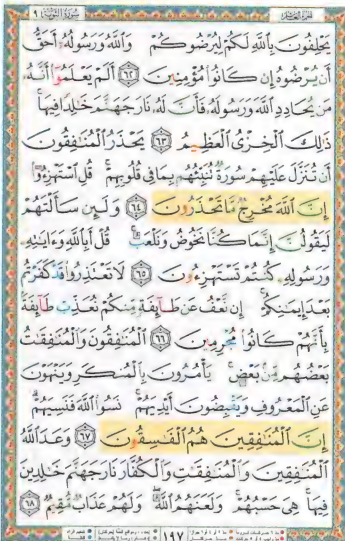 سُورَةُ التَّوْبَةِ ٩
الجزء العاشر
يَحْلِفُونَ بِاللَّهِ لَكُمْ لِيُرْضُوكُمْ وَاللَّهُ وَرَسُولُهُ أَحَقُّ
أَن يُرْضُوهُ إِن كَانُوا مُؤْمِنِينَ ٦٢ أَلَمْ يَعْلَمُوا أَنَّهُ
مَن يُحَادِدِ اللَّهَ وَرَسُولَهُ فَأَنَّ لَهُ نَارَ جَهَنَّمَ خَالِدًا فِيهَا
ذَٰلِكَ الْخِزْيُ الْعَظِيمُ ٦٣ يَحْذَرُ الْمُنَافِقُونَ
أَن تُنَزَّلَ عَلَيْهِمْ سُورَةٌ تُنَبِّئُهُم بِمَا فِي قُلُوبِهِمْ قُلِ اسْتَهْزِءُوا
إِنَّ اللَّهَ مُخْرِجٌ مَّا تَحْذَرُونَ ٦٤ وَلَئِن سَأَلْتَهُمْ
لَيَقُولُنَّ إِنَّمَا كُنَّا نَخُوضُ وَنَلْعَبُ قُلْ أَبِاللَّهِ وَآيَاتِهِ
وَرَسُولِهِ كُنتُمْ تَسْتَهْزِءُونَ ٦٥ لَا تَعْتَذِرُوا قَدْ كَفَرْتُم
بَعْدَ إِيمَانِكُمْ إِن نَّعْفُ عَن طَائِفَةٍ مِّنكُمْ نُعَذِّبْ طَائِفَةً
بِأَنَّهُمْ كَانُوا مُجْرِمِينَ ٦٦ الْمُنَافِقُونَ وَالْمُنَافِقَاتُ
بَعْضُهُم مِّن بَعْضٍ يَأْمُرُونَ بِالْمُنكَرِ وَيَنْهَوْنَ
عَنِ الْمَعْرُوفِ وَيَقْبِضُونَ أَيْدِيَهُمْ نَسُوا اللَّهَ فَنَسِيَهُمْ
إِنَّ الْمُنَافِقِينَ هُمُ الْفَاسِقُونَ ٦٧ وَعَدَ اللَّهُ
الْمُنَافِقِينَ وَالْمُنَافِقَاتِ وَالْكُفَّارَ نَارَ جَهَنَّمَ خَالِدِينَ
فِيهَا هِيَ حَسْبُهُمْ وَلَعَنَهُمُ اللَّهُ وَلَهُمْ عَذَابٌ مُّقِيمٌ ٦٨
١٩٧